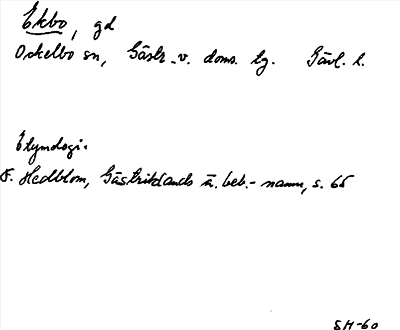 Ekbo, gd
Ockelbo sn, Gästr. v. doms. lg. Gävl. l.
Etymologi:
F. Hedblom, Gästriklands ä. beb.-namn, s. 66
SH-60